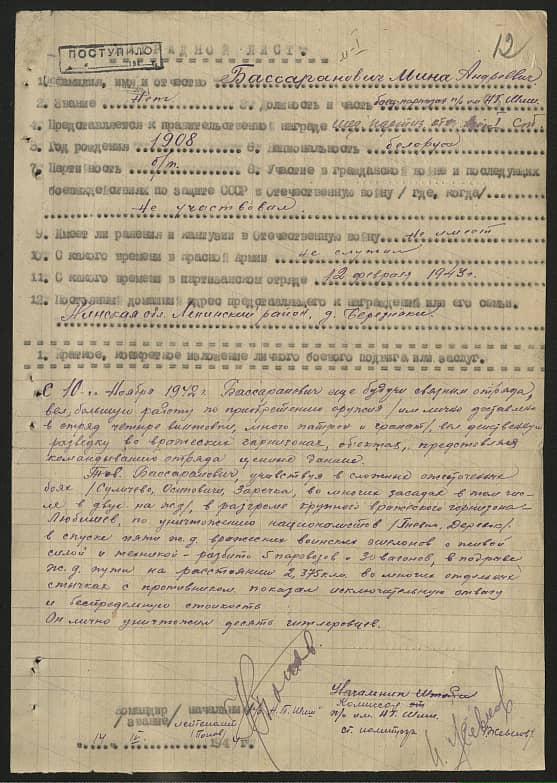 ПОСТУПИЛО
НАГРАДНОЙ ЛИСТ.
12
1. Фамилия, имя и отчество Бассаранович Мина Андреевич.
2. Звание Нет 3. Должность и часть боец партизан п/о им. НГ. Шиш.
4. Представляется к правительственной награде
5. Год рождения 1908 6. Национальность белорус
7. Партийность б/п. 8. Участие в гражданской войне и последующих
боевых действиях по защите СССР и Отечественную войну / где, когда/
Не участвовал.
9. Имеет ли ранения и контузии в Отечественную войну Не имеет
10. С какого времени в Красной Армии не служил
11. С какого времени в партизанском отряде 12 февраля 1943 г.
12. Постоянный домашний адрес представляемого к награждению или его семьи.
Пинская обл. Ленинский район, д.
1. Краткое, конкретное изложение личного боевого подвига или заслуг.
С 10 Ноября 1942 г. Бассаранович еще будучи связным отряда,
вел большую работу по приобретению оружия /им лично доставлено
в отряд четыре винтовки, много патрон и гранат/, вел действенную
разведку во вражеских гарнизонах, объектах, представлял
командованию отряда ценные данные.
Тов. Бассаранович, участвуя в сложных ожесточенных
боях /Суличево, Осиповичи, Заречка, во многих засадах в том чис-
ле в двух на жд/, в разгроме крупного вражеского гарнизона
Любишев, по уничтожению националистов
в спуске пяти ж.д. вражеских воинских эшелонов с живой
силой и техникой - разбито 5 паровозов и 30 вагонов, в подрыве
ж.д. пути на расстоянии 2,375 кло. во многих отдельных
стычках с противником, показал исключительную отвагу
и беспредельную стойкость
Он лично уничтожил десять гитлеровцев.
Командир / начальник
/звание/ лейтенант
(Попов)
Комиссар
п/о им. НГ. Шиш.
ст. политрук
14 194 г.